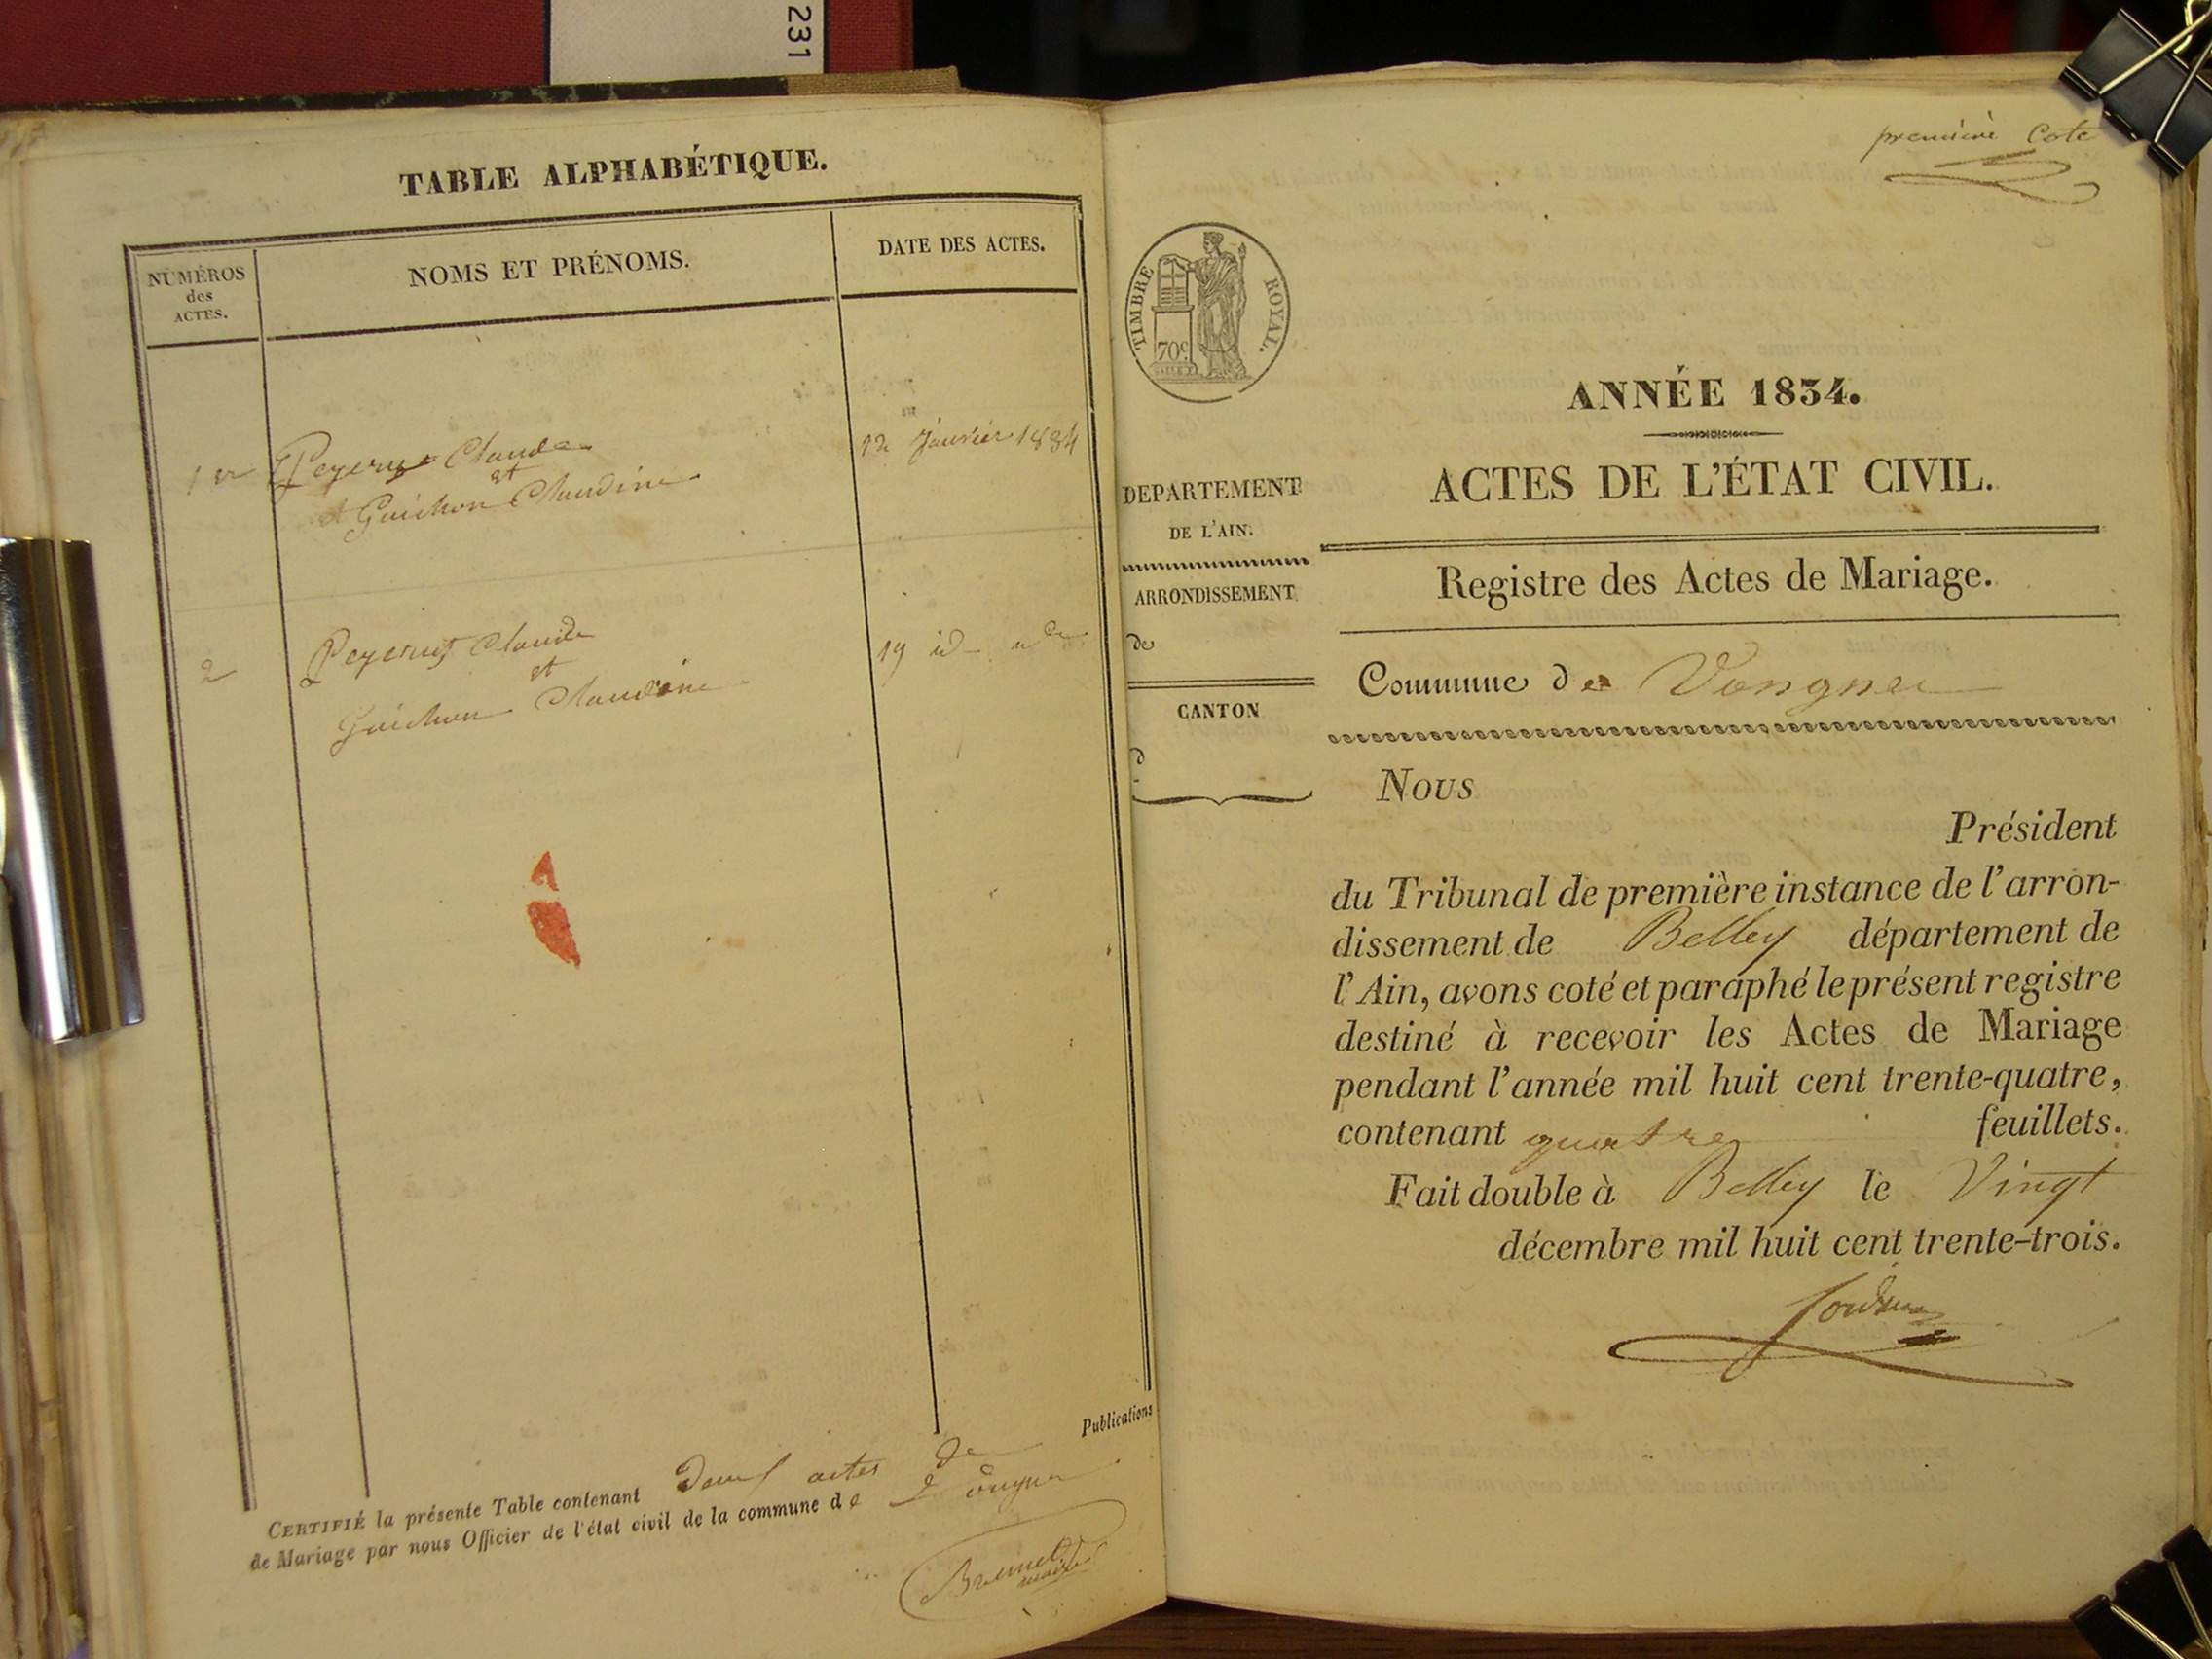 231
TABLE ALPHABÉTIQUE.
NUMÉROS
des
ACTES.
NOMS ET PRÉNOMS.
DATE DES ACTES.
1er Claude
et
Guichon Claudine
12 Janvier 1834
2 Claude
et
Guichon Claudine
19 id
Publications
CERTIFIÉ la présente Table contenant Deux actes de
de Mariage par nous Officier de l'état civil de la commune de
première Cote
TIMBRE ROYAL.
70c
DEPARTEMENT
DE L'AIN.
ARRONDISSEMENT
de
CANTON
d
ANNÉE 1834.
ACTES DE L'ÉTAT CIVIL.
Registre des Actes de Mariage.
Commune de Vongnes
Nous
Président
du Tribunal de première instance de l'arron-
dissement de Belley département de
l'Ain, avons coté et paraphé le présent registre
destiné à recevoir les Actes de Mariage
pendant l'année mil huit cent trente-quatre,
contenant quatre feuillets.
Fait double à Belley le Vingt
décembre mil huit cent trente-trois.